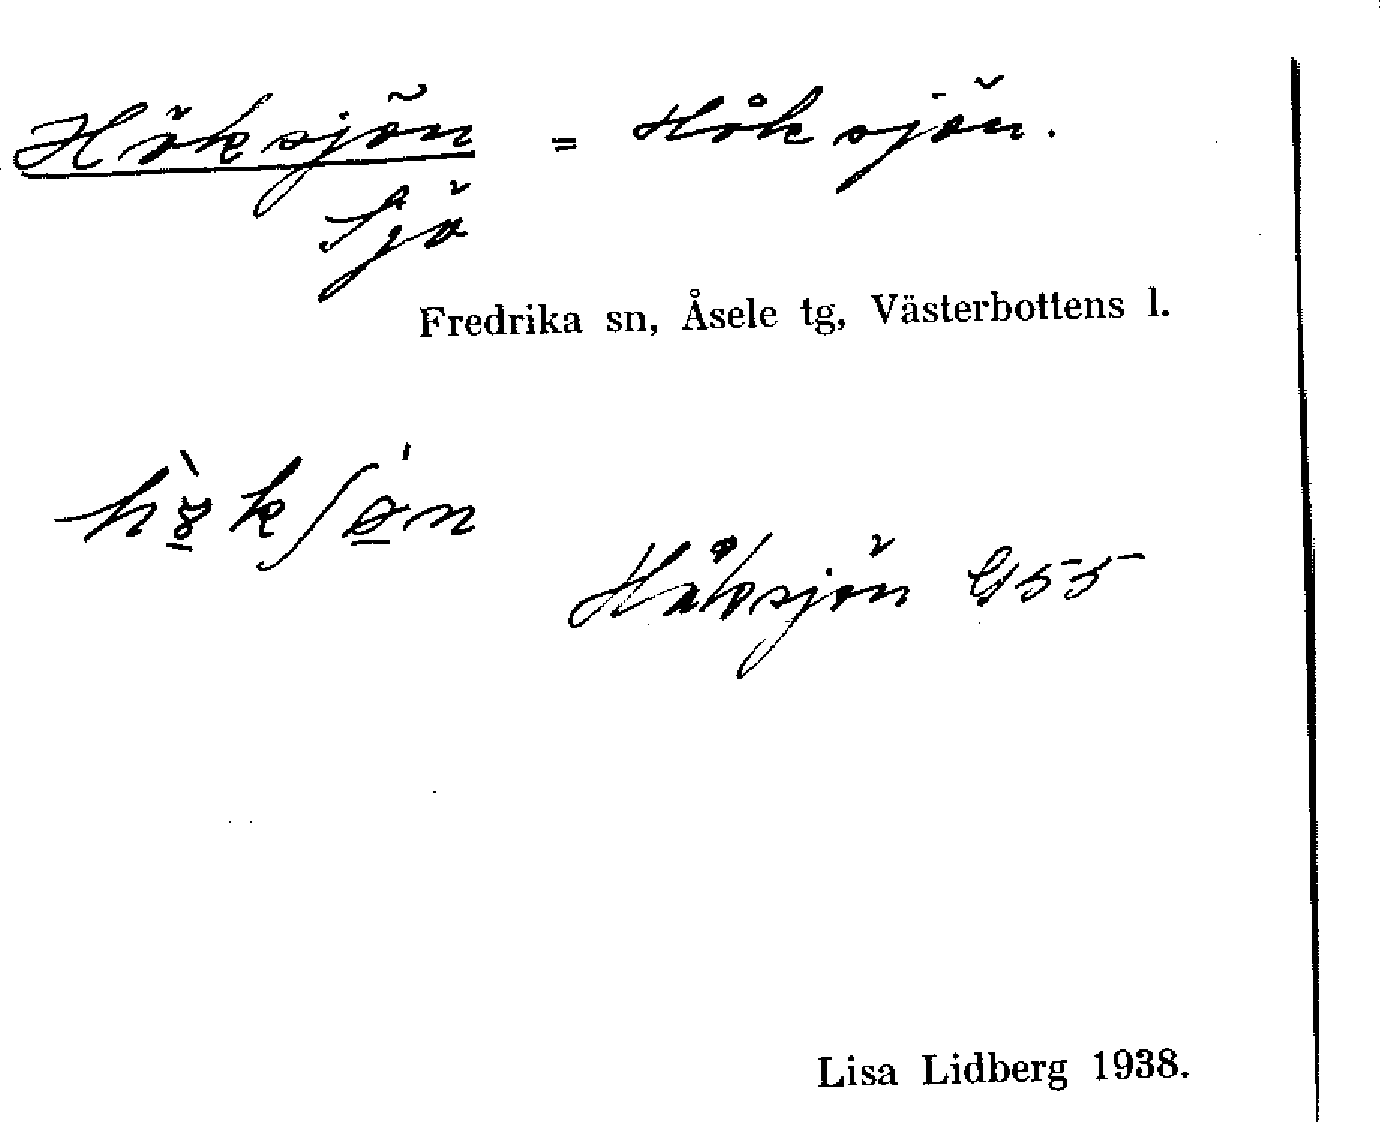 Höksjön = Håksjön.
Sjö
Fredrika sn, Åsele tg, Västerbottens l.
Håksjön G55
Lisa Lidberg 1938.